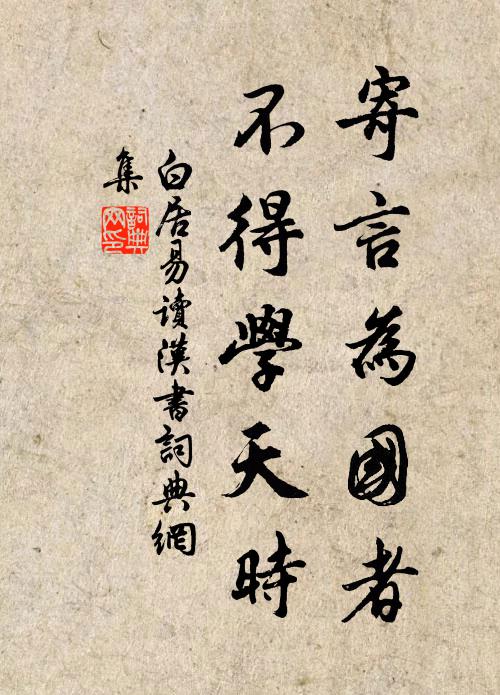 寄言為國者
不得學天時
白居易讀漢書詞典網
集
詞典網印